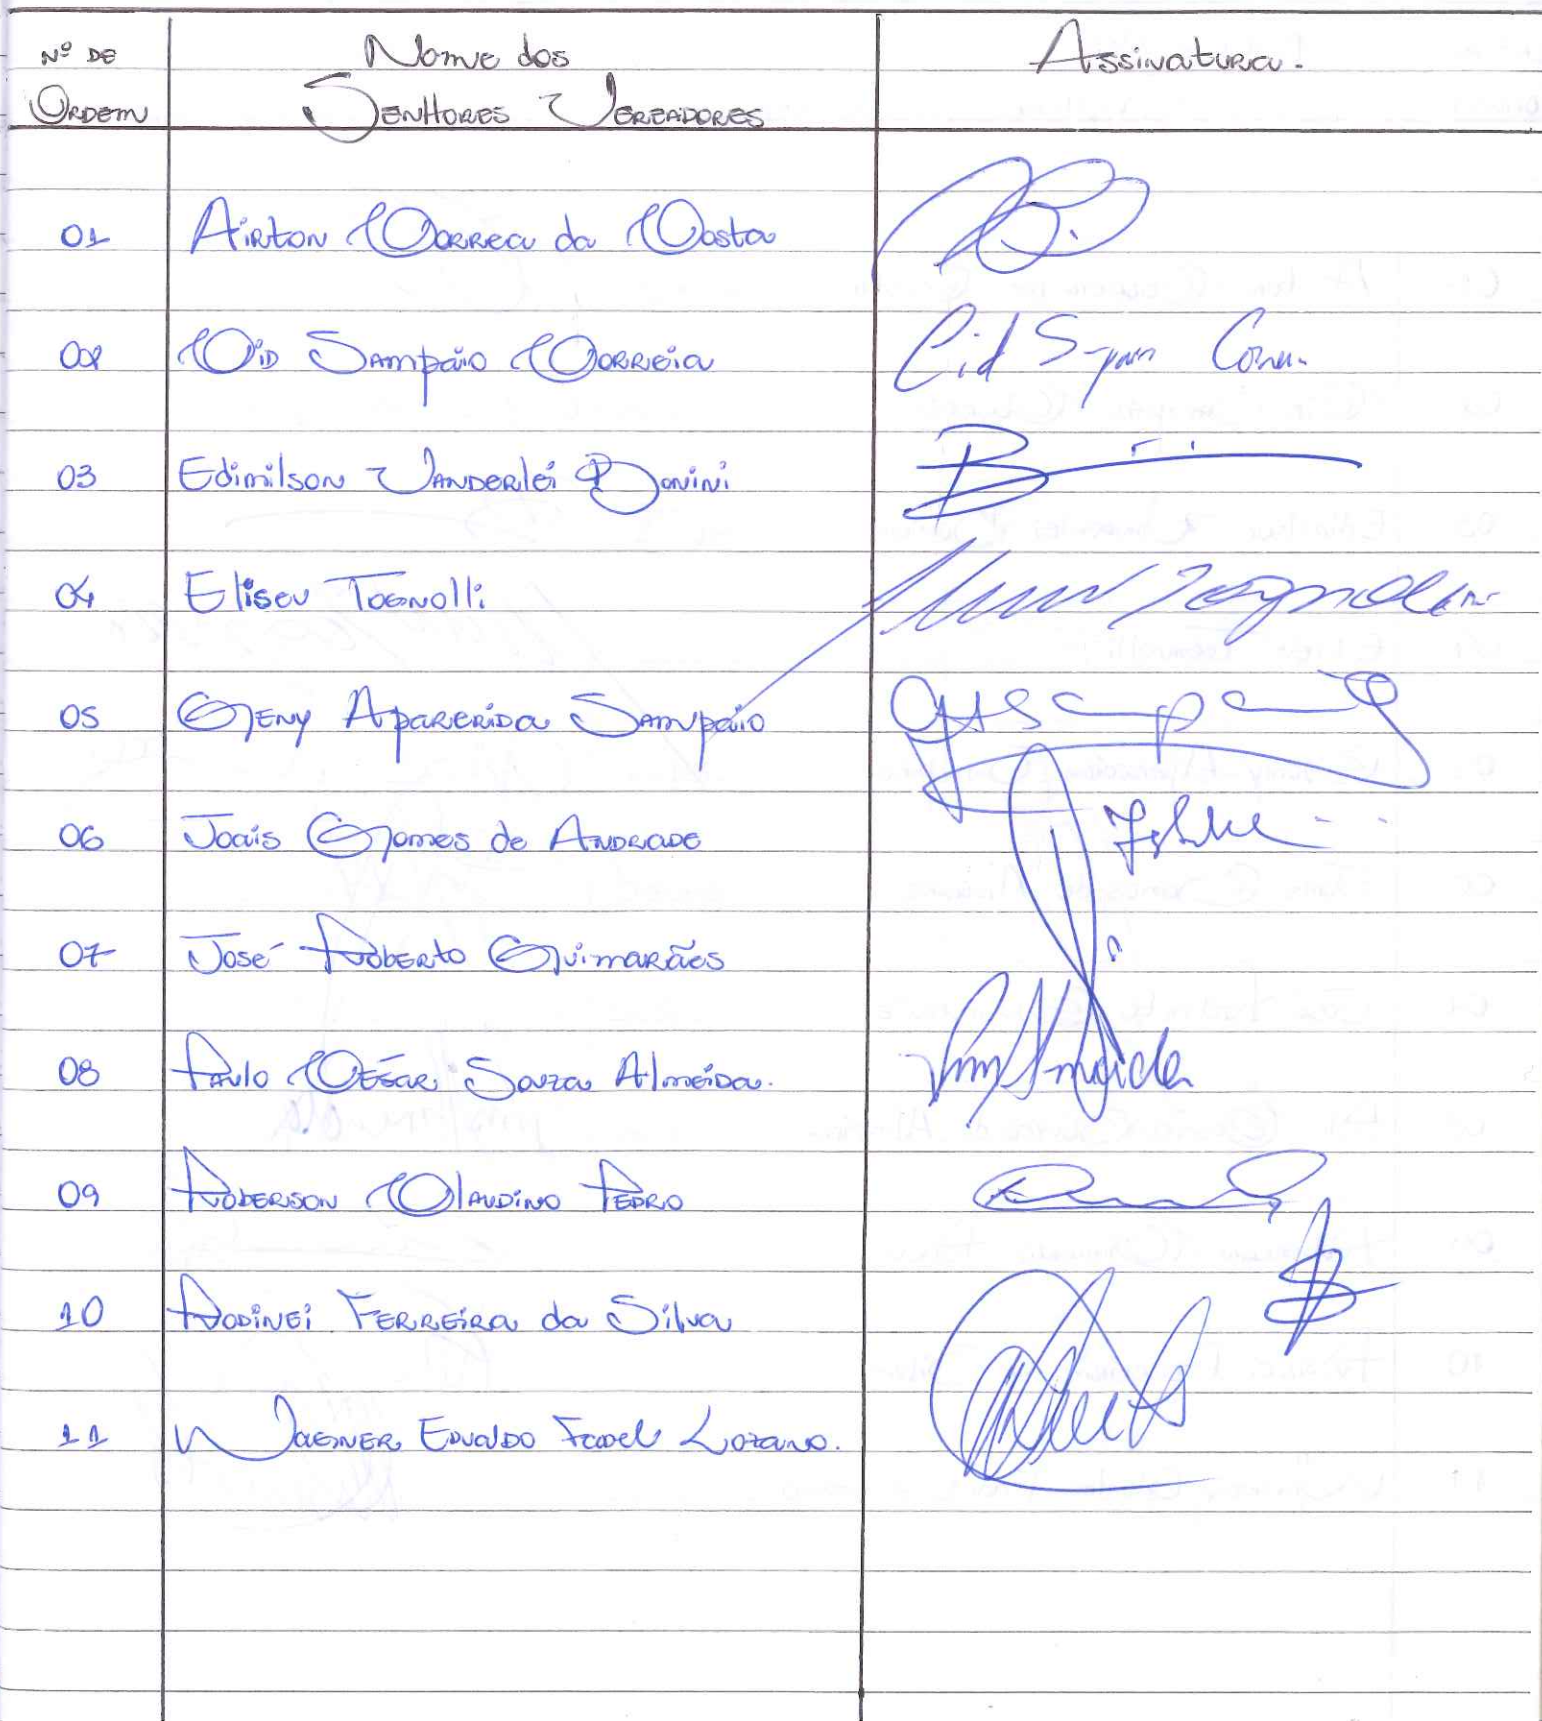 Nº DE Nome dos Assinatura.
Ordem Senhores Vereadores
01 Airton Correa da Costa
02 Cid Sampaio Correia Cid
03 Edimilson Vanderlei Bonini
04 Eliseu Tognolli
05 Geny Aparecida Sampaio
06 Joais Gomes de Andrade
07 José Roberto Guimarães
08 Paulo César Souza Almeida. Almeida
09 Roberson Claudino Pedro
10 Rodinei Ferreira da Silva
11 Wagner Edvaldo Fadel Lozano.